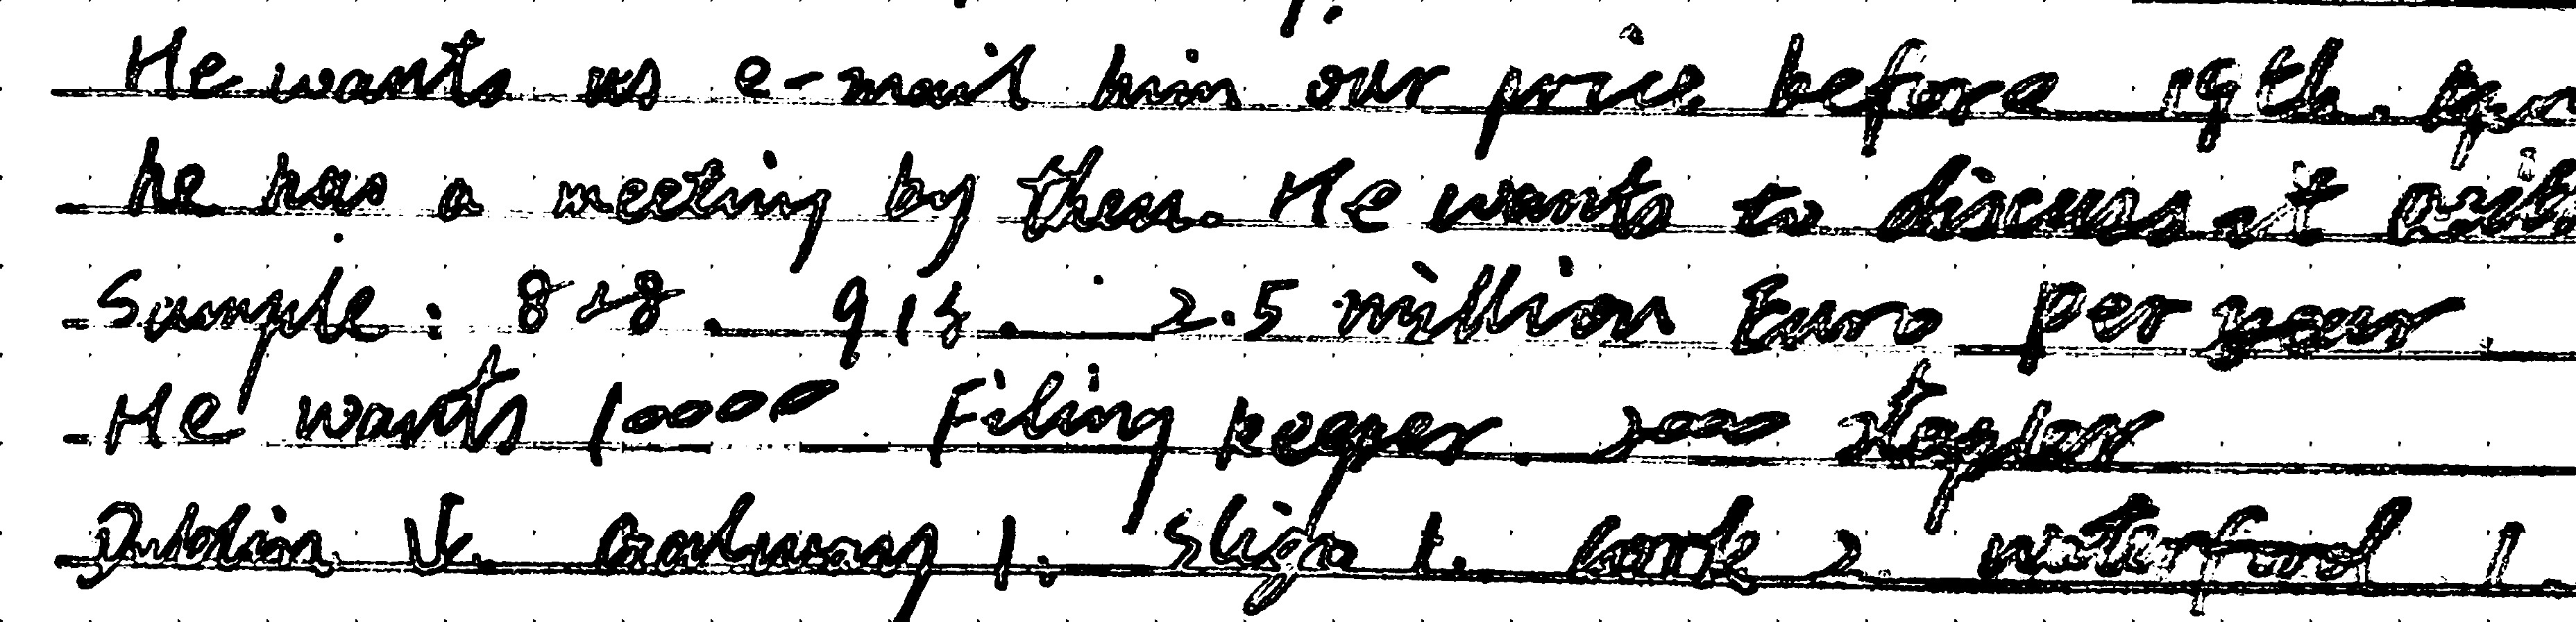 He wants us e-mail him our price before 19th.
he has a meeting by then. He wants to discuss it with
Sample: 828. 918. 2.5 million Euro per year
He wants 10000 Filing keeper. 2000 stapler
Dublin 5. Galway 1. Sligo 1. Cork 2 waterford 1.